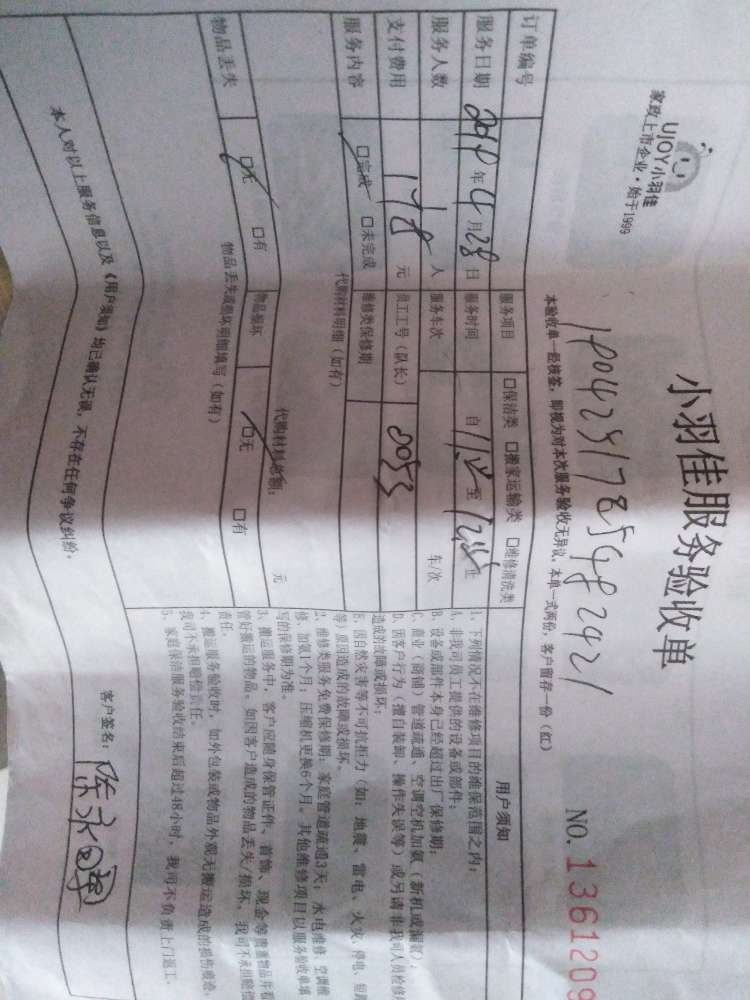 UJOY小羽佳
家政上市企业·始于1999
小羽佳服务验收单
NO.1361209
本验收单一经核签，即视为对本次服务验收无异议，本单一式两份，客户留存一份（红）
订单编号
服务项目 口保洁类 口搬家运输类 口维修清洗类
服务日期 年4月28日 服务时间 自 至 止
服务人数 1人 服务车次 车/次
支付费用 178元 员工工号（队长） 8053
服务内容 口完成 口未完成 维修类保修期
代购材料明细（如有）
代购材料总额： 元
物品丢失 口无 口有 物品损坏 口无 口有
物品丢失或损坏明细填写（如有）
用户须知
1、下列情况不在维修项目的维保范围之内：
A、非我司员工提供的设备或部件；
B、设备或部件本身已经超过出厂保修期；
C、商业（商铺）管道疏通、空调空机加氨（新机或漏氟）；
D、因客户行为（擅自装卸、操作失误等）或另请非我司人员检修
造成的故障或损坏；
E、因自然灾害等不可抗拒力（如：地震、雷电、火灾、停电、短路
等）原因造成的故障或损坏。
2、维修类服务免费保修期：家庭管道疏通3天；水电维修、空调维
修、加氨1个月；压缩机更换6个月。其他维修项目以服务验收单填
写的保修期为准。
3、搬运服务中，客户应随身保管证件、首饰、现金等贵重物品并看
管好搬运的物品。如因客户造成的物品丢失/损坏，我司不承担赔偿
责任。
4、搬运服务验收时，如外包装或物品外观无搬运造成的损伤痕迹，
我司不承担赔偿责任。
5、家庭保洁服务验收结束后超过48小时，我司不负责上门返工。
本人对以上服务信息以及《用户须知》均已确认无误，不存在任何争议纠纷。
客户签名：